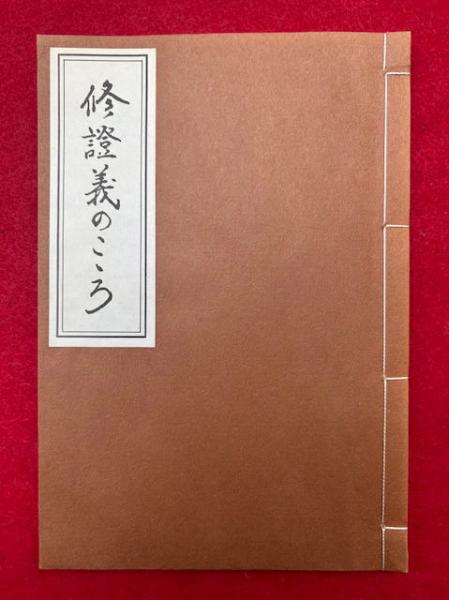 修證義のこゝろ